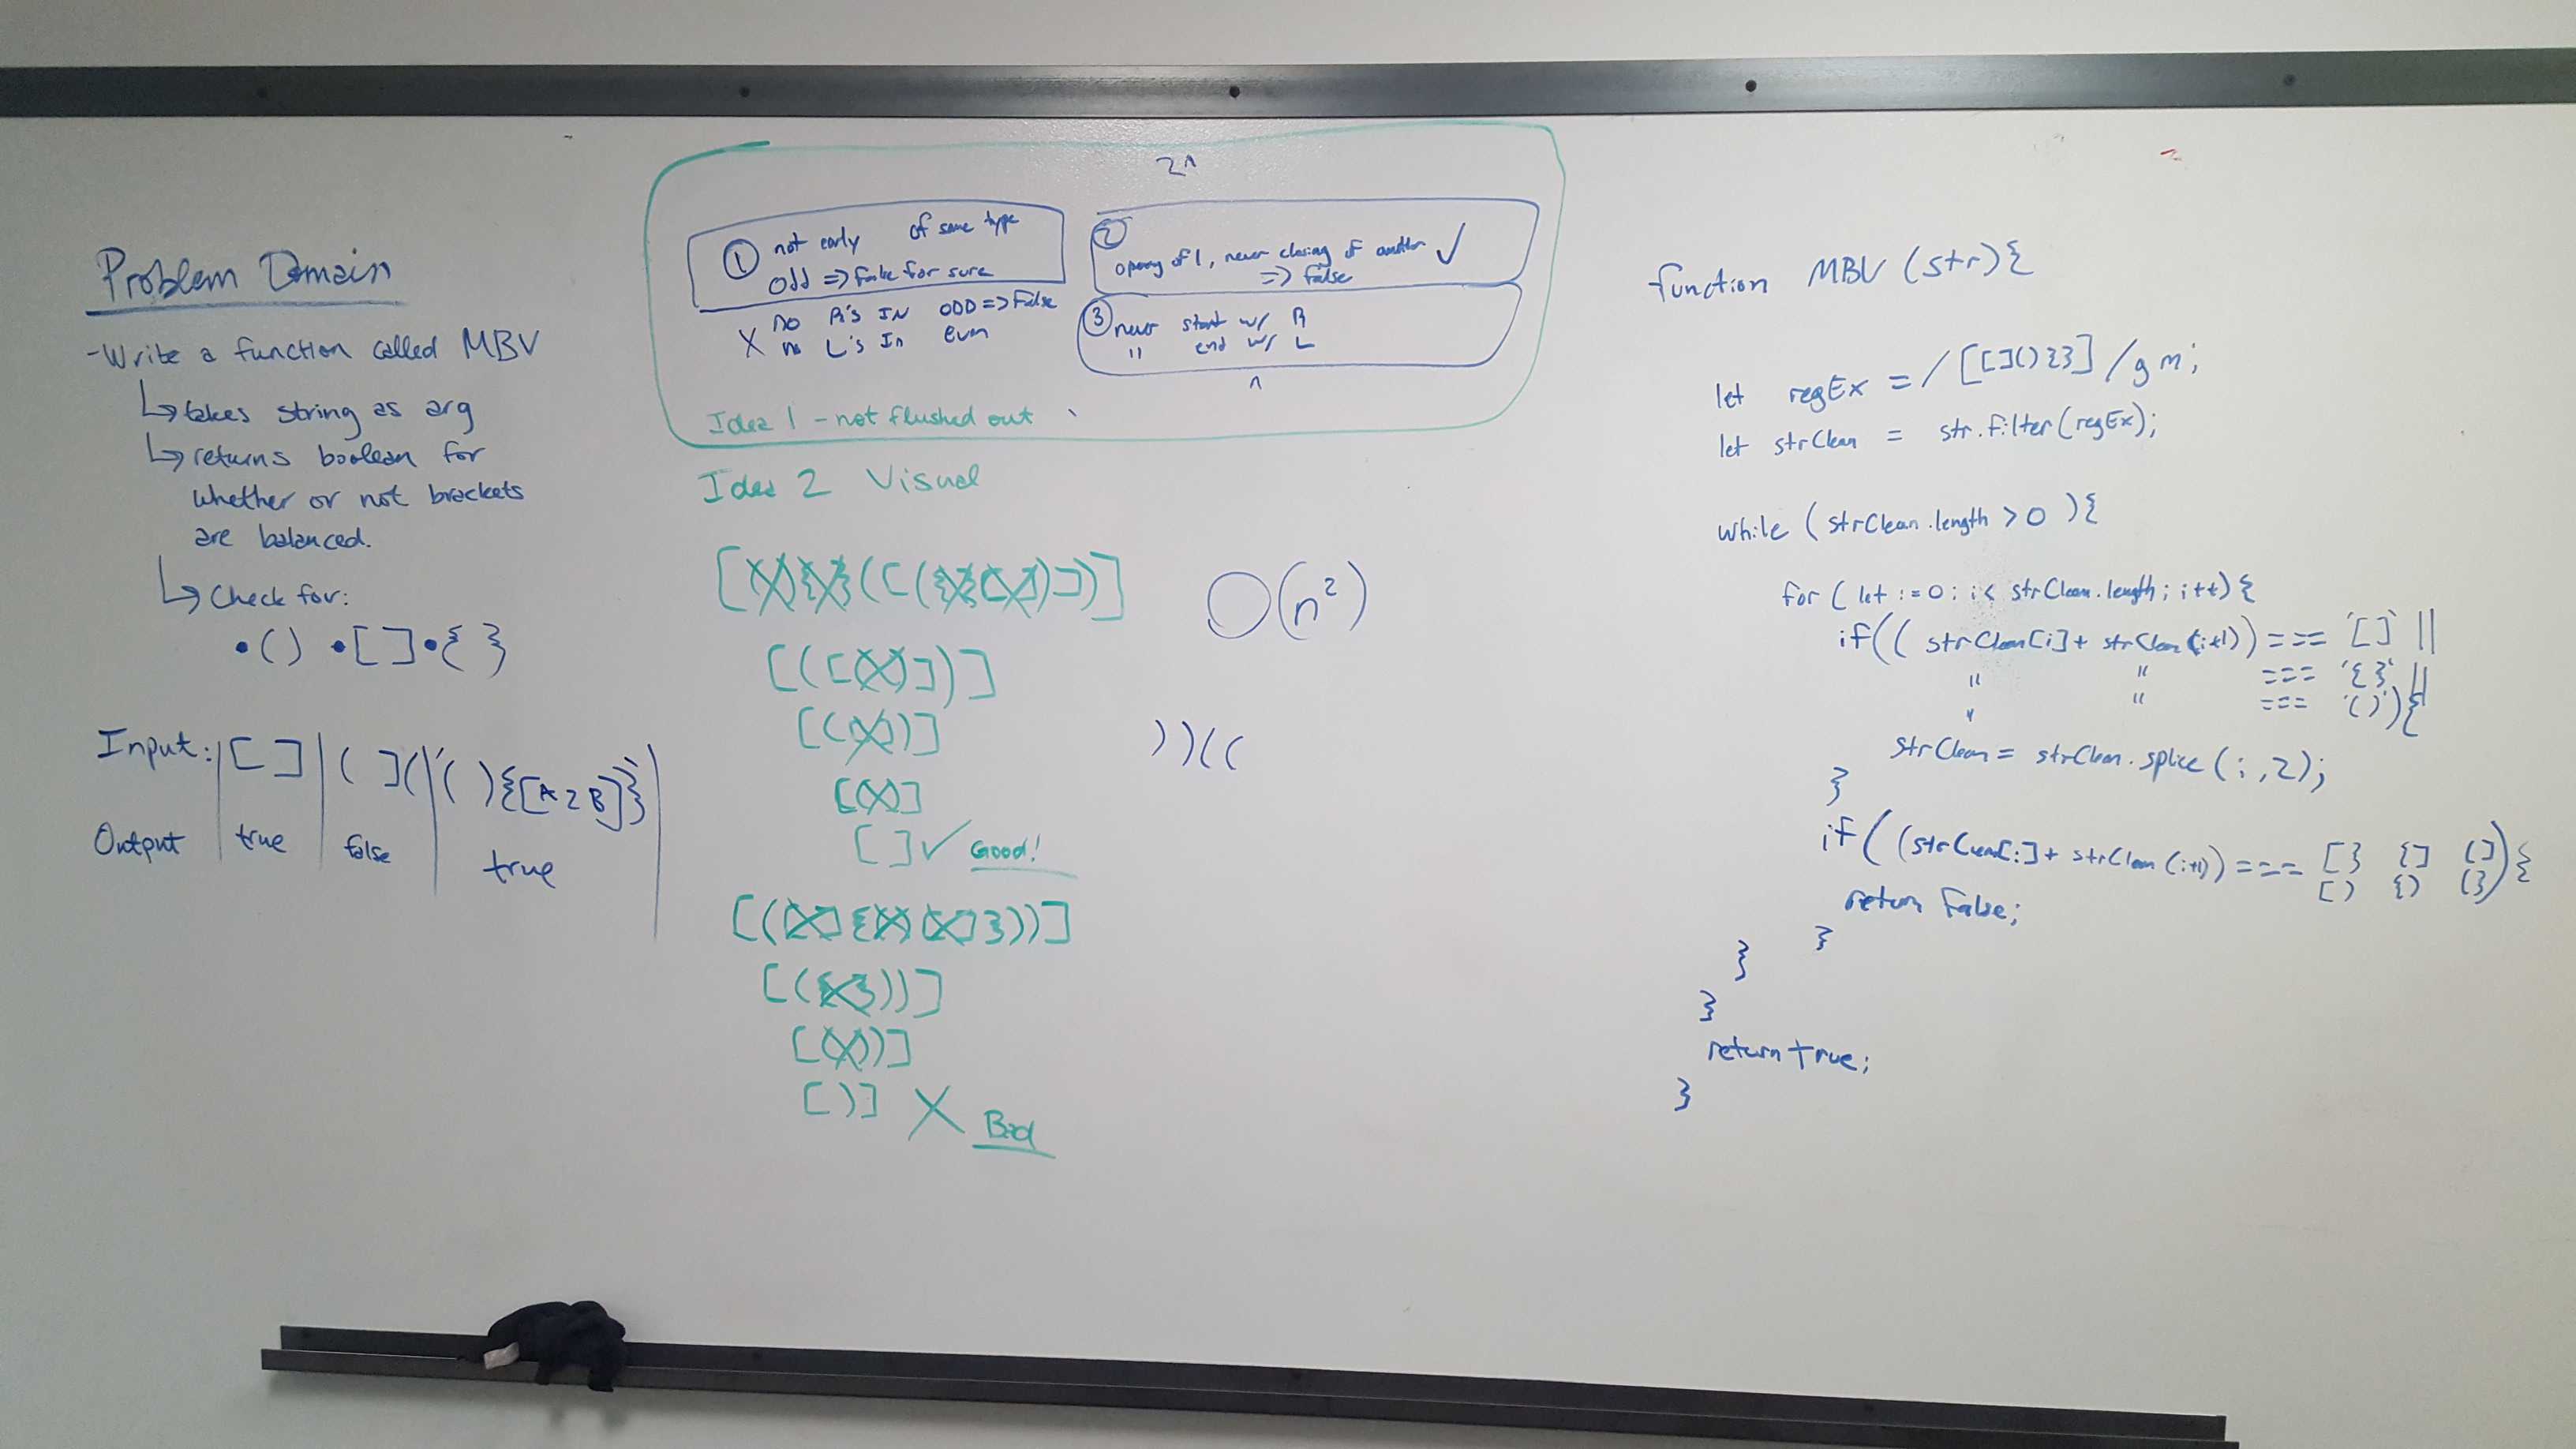 Problem Domain
- Write a function called MBV
↳ takes string as arg
↳ returns boolean for
whether or not brackets
are balanced.
↳ Check for:
• () • [ ] • { }
Input: | [ ] | ( ] ( | '( ){[A2B]}' |
Output | true | false | true |
2n
① not early of same type
odd => false for sure
X no R's IN ODD => False
no L's In even
② opening of 1, never closing of another ✓
=> false
③ never start w/ R
" end w/ L
n
Idea 1 - not flushed out
Idea 2 Visual
[(){}([({}[])])]
[([()])]
[()]
[ ] ✓ Good!
O(n²)
))((
[([]{()[]}))]
[({}))]
[())]
[)] X Bad
function MBV (str){
let regEx = /[[](){}]/gm;
let strClean = str.filter(regEx);
while (strClean.length > 0 ){
for ( let i=0; i< strClean.length; i++){
if(( strClean[i]+ strClean(i+1)) === '[]' ||
" " === '{}' ||
" " === '()'){
strClean = strClean.splice(i,2);
}
if ( (strClean[i]+ strClean (i+1)) === [} {] (]){
[) {) (}
return false;
}
}
}
return true;
}